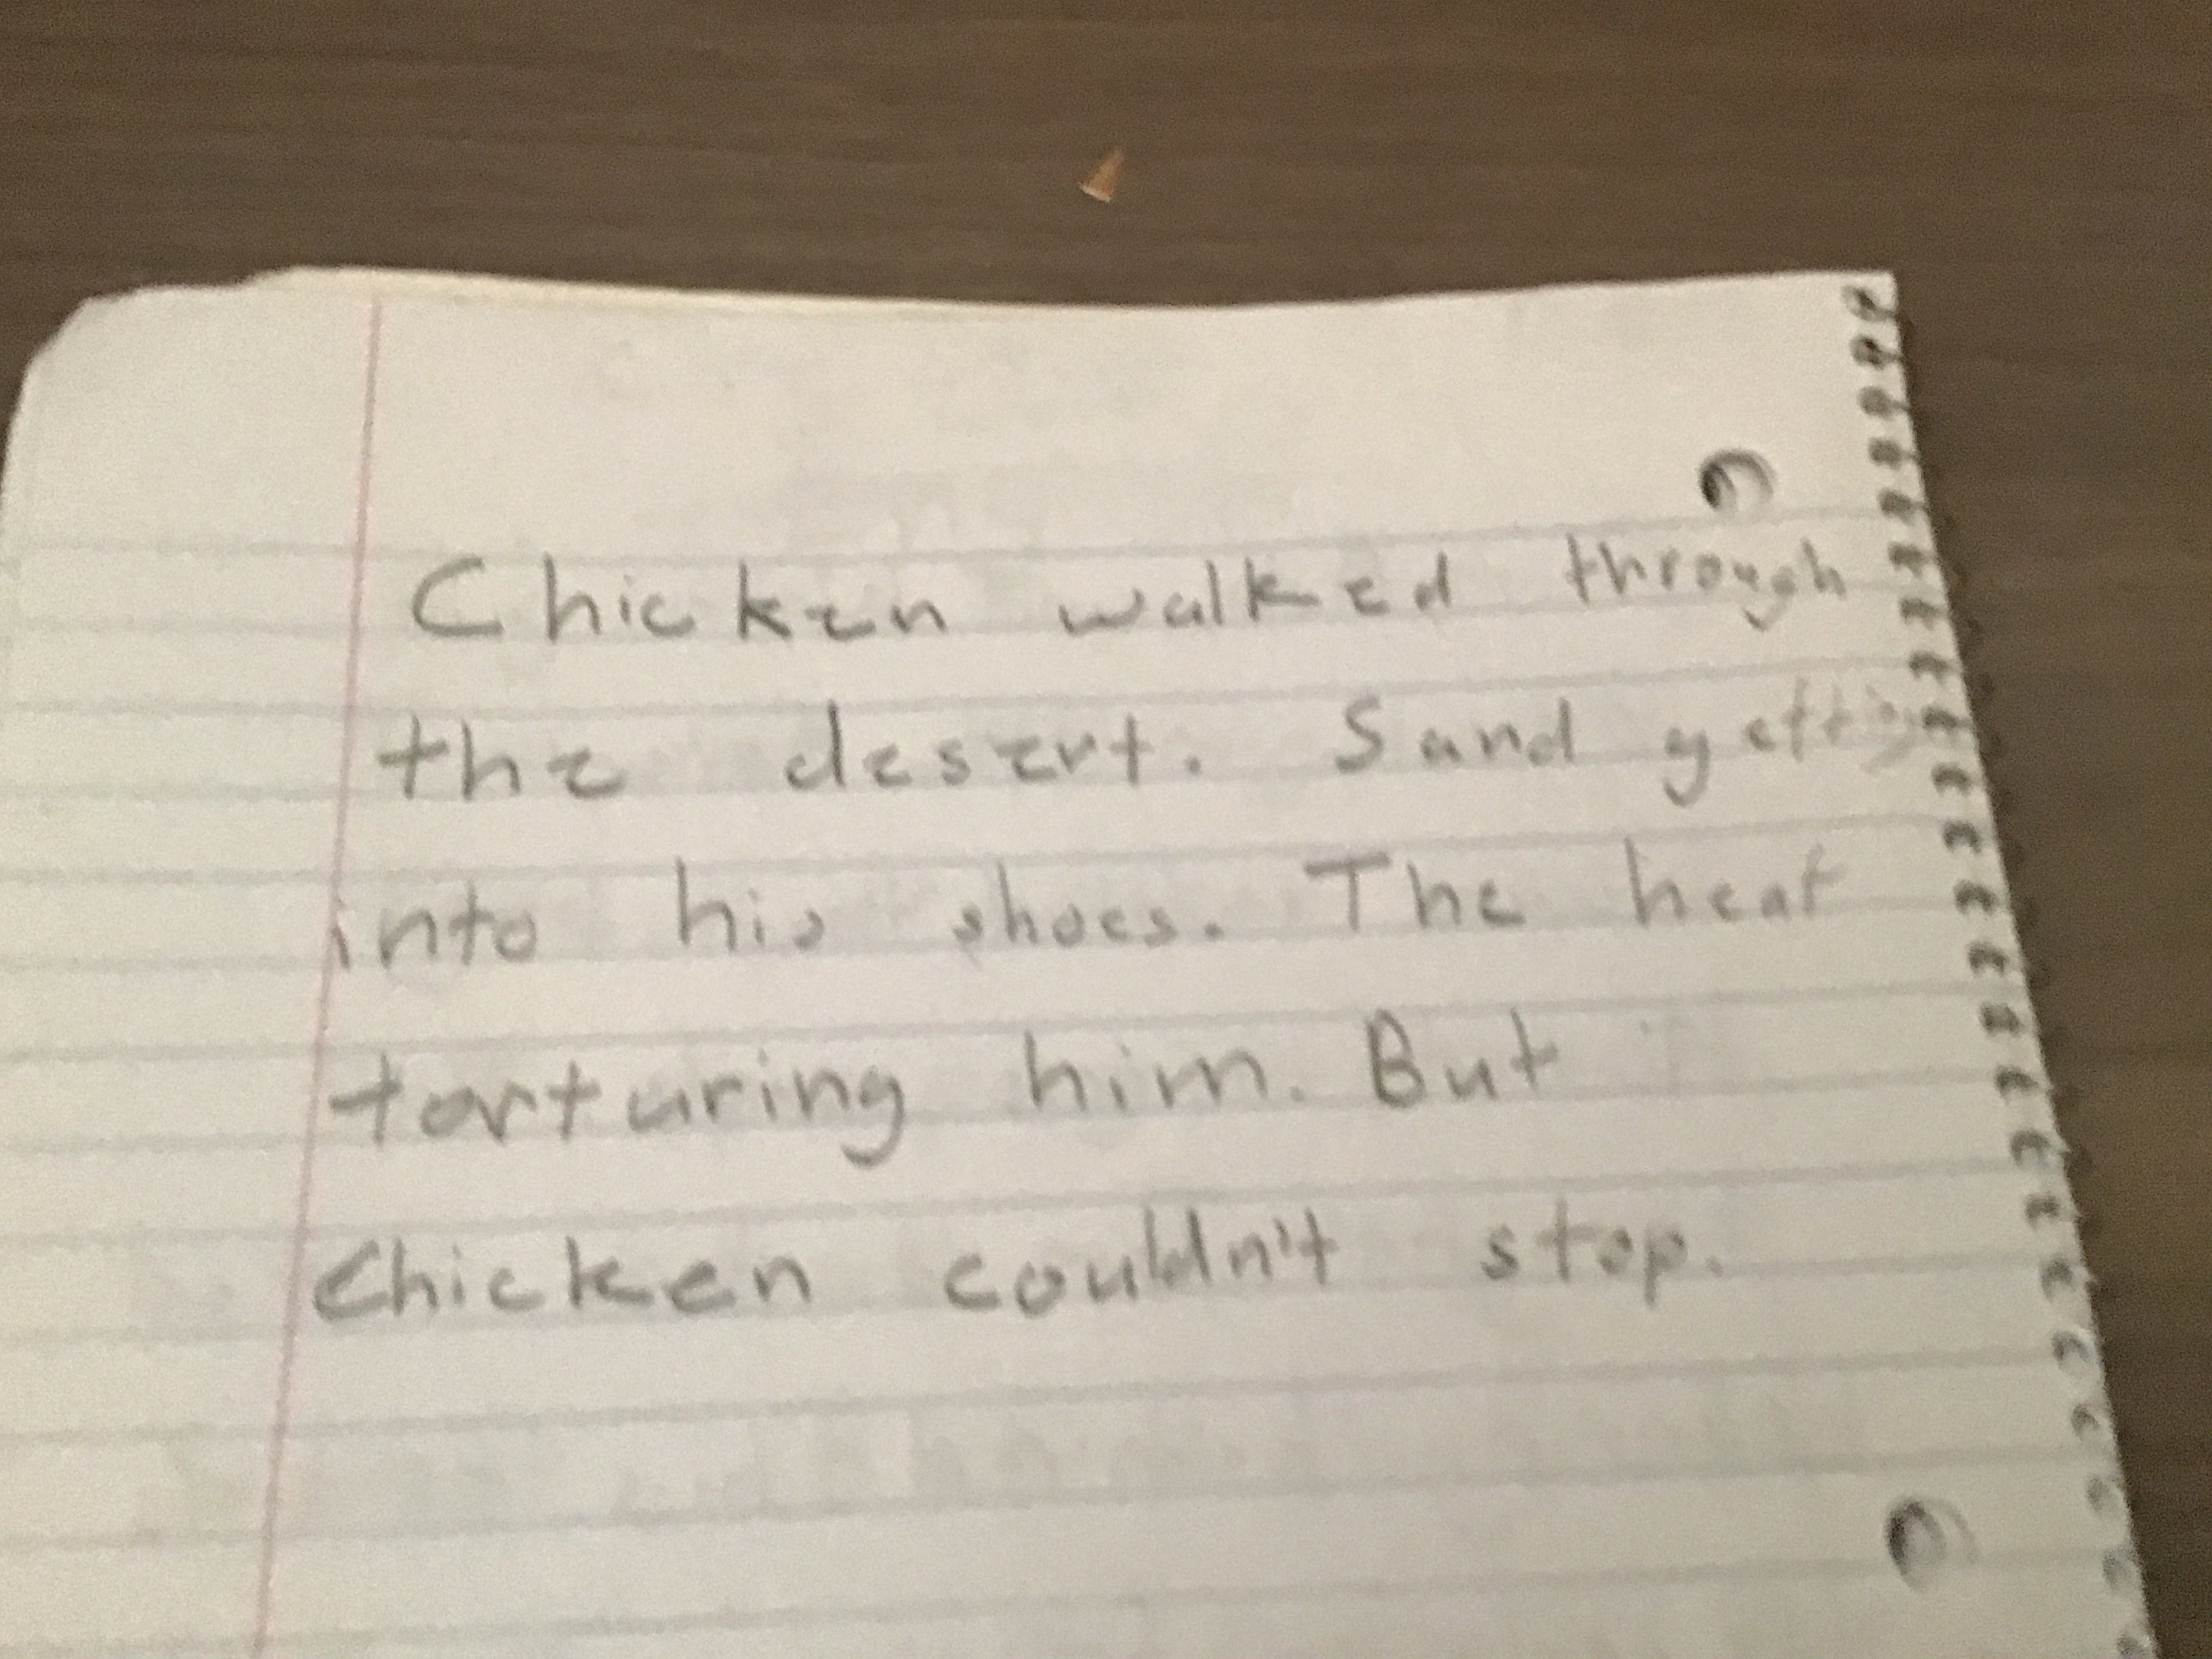 Chicken walked through
the desert. Sand getting
into his shoes. The heat
torturing him. But
Chicken couldn't stop.